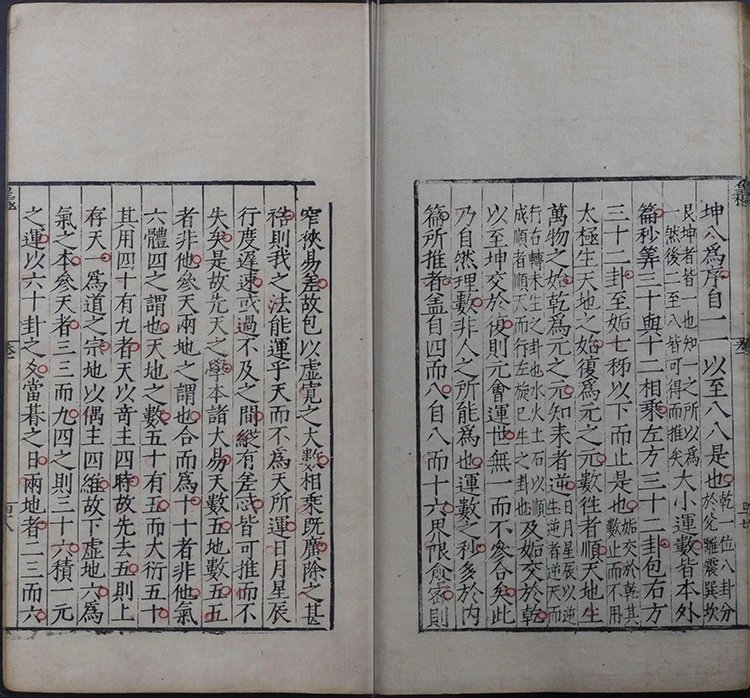 坤八爲序自一一以至八八是也乾一位八卦分
於兌離震巽坎
艮坤者皆一也知一之所以爲
一然後二至八皆可得而推矣大小運數皆本外
篇秒筭三十與十二相乘左方三十二卦包右方
三十二卦至姤七秭以下而止是也姤交於乾其
數止而不用
太極生天地之始復爲元之元數徃者順天地生
萬物之始乾爲元之元知来者逆日月星辰以逆
生逆者逆天而
行右轉未生之卦也水火土石以順
成順者順天而行左旋已生之卦也及姤交於乾
以至坤交於復則元會運世無一而不參合矣此
乃自然理數非人之所能爲也運數之秒多於内
篇所推者盖自四而八自八而十六界限愈密則
窄狹易差故包以虚寛之大數相乘旣廣除之甚
則我之法能運乎天而不爲天所運日月星辰
行度遲速或過不及之間縱有差忒皆可推而不
失矣是故先天之學本諸大易天數五地數五五
者非他參天兩地之謂也合而爲十十者非他氣
六體四之謂也天地之數五十有五而大衍五十
其用四十有九者天以竒主四時故先去五則上
存天一爲道之宗地以偶主四維故下虚地六爲
氣之本參天者三三而九四之則三十六積一元
之運以六十卦之爻當朞之日兩地者二三而六